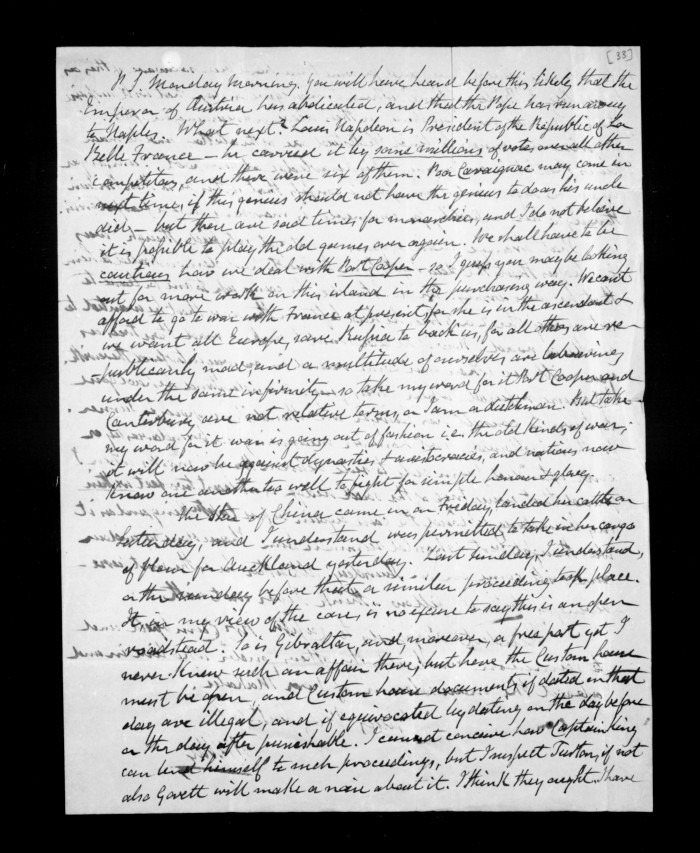 [33]
P.S. Monday Morning. You will have heard before this likely that the
Emperor of Austria has abdicated, and that the Pope has run away
to Naples. What next? Louis Napoleon is President of the Republic of La
Belle France – he carried it by some millions of votes over all other
competitors, and there were six of them. Poor Cavaignac may come in
next time, if this genius should not have the genius to do as his uncle
did – but these are sad times for monarchies, and I do not believe
it is possible to play the old games over again. We shall have to be
cautious how we deal with Port Cooper – so I guess you may be looking
out for more work on this island in the purchasing way. We can't
afford to go to war with France at present, for she is in the ascendant &
we want all Europe, save Russia to back us, for all others are re-
publicanly mad, and a multitude of ourselves are labouring
under the same infirmity – so take my word for it Port Cooper and
Canterbury are not relative terms, or I am a dutchman. But take
my word for it war is going out of fashion i.e. the old kind of war;
it will now be against dynasties & aristocracies, and nations now
know one another too well to fight for simple honour & glory.
The Star of China came in on Friday, landed her cattle on
Saturday, and I understand was permitted to take in her cargo
of flour for Auckland yesterday. Last sunday, I understand,
or the sunday before that a similar proceeding took place.
It is, in my view of the case, no excuse to say this is an open
roadstead. So is Gibraltar, and, moreover, a free port yet I
never knew such an affair there; but here the Custom house
must be open, and Custom house documents if dated on that
day are illegal, and if equivocated by dating on the day before
or the day after punishable. I cannot conceive how Captain King
can lend himself to such proceedings, but I suspect Turton, if not
also Govett will make a noise about it. I think they ought. I have